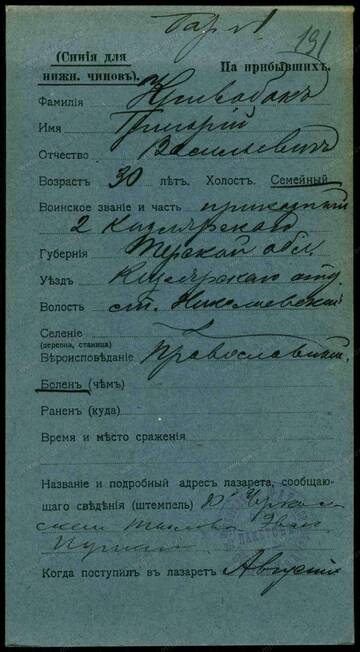 191
(Синія для
нижн. чиновъ).
На прибывшихъ.
Фамилія Кривобокъ
Имя Григорій
Отчество Васильевичъ
Возрастъ 30 лѣтъ. Холост. Семейный
Воинское званіе и часть приказный
2 Кизлярскаго
Губернія Терской обл.
Уѣздъ Кизлярскаго отд.
Волость ст. Николаевской
Селеніе
(деревня, станица)
Вѣроисповѣданіе Православный.
Боленъ (чѣмъ)
Раненъ (куда)
Время и мѣсто сраженія
Названіе и подробный адресъ лазарета, сообщаю-
щаго свѣдѣнія (штемпель)
Эвак
Пункт
Когда поступилъ въ лазаретъ Августа